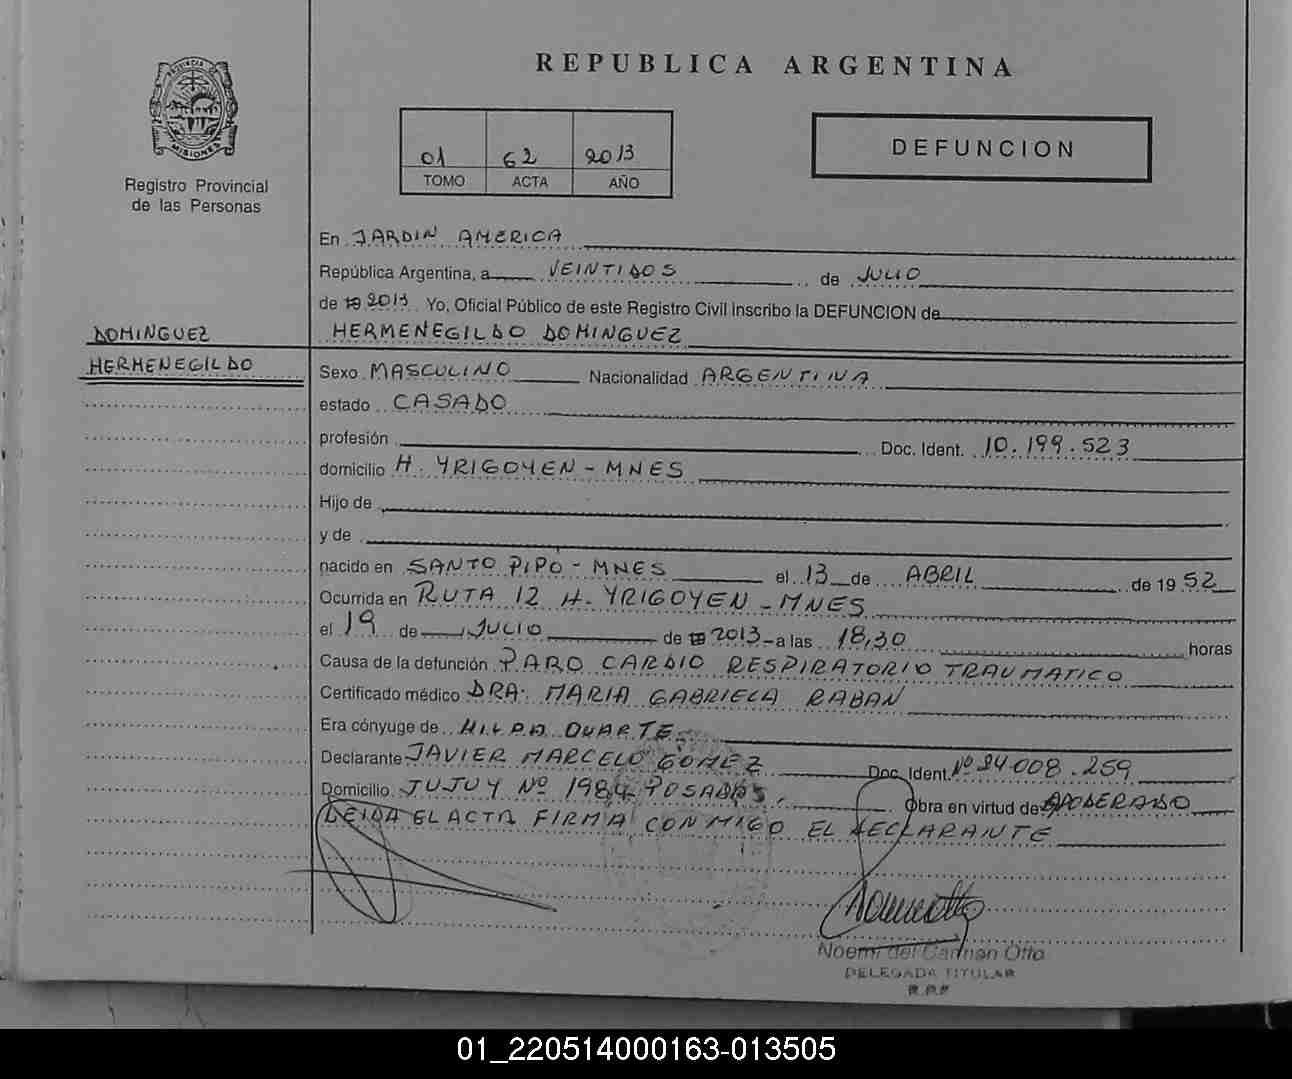 REPUBLICA ARGENTINA
PROVINCIA DE
MISIONES
Registro Provincial
de las Personas
01 62 2013
TOMO ACTA AÑO
DEFUNCION
En JARDIN AMERICA
República Argentina, a VEINTIDOS de JULIO
de 19 2013 Yo, Oficial Público de este Registro Civil inscribo la DEFUNCION de
DOMINGUEZ
HERMENEGILDO
HERMENEGILDO DOMINGUEZ
Sexo MASCULINO Nacionalidad ARGENTINA
estado CASADO
profesión Doc. Ident. 10.199.523
domicilio H. YRIGOYEN - MNES
Hijo de
y de
nacido en SANTO PIPO - MNES el 13 de ABRIL de 19 52
Ocurrida en RUTA 12 H. YRIGOYEN - MNES
el 19 de JULIO de 19 2013 a las 18,30 horas
Causa de la defunción PARO CARDIO RESPIRATORIO TRAUMATICO
Certificado médico DRA. MARIA GABRIELA RABAN
Era cónyuge de HILDA DUARTE
Declarante JAVIER MARCELO GOMEZ Doc. Ident. Nº 24.008.259
Domicilio JUJUY Nº 1984 POSADAS, Obra en virtud de APODERADO
LEIDA EL ACTA FIRMA CONMIGO EL DECLARANTE
Noemi del Carmen Otto
DELEGADA TITULAR
R.P.P
01_220514000163-013505